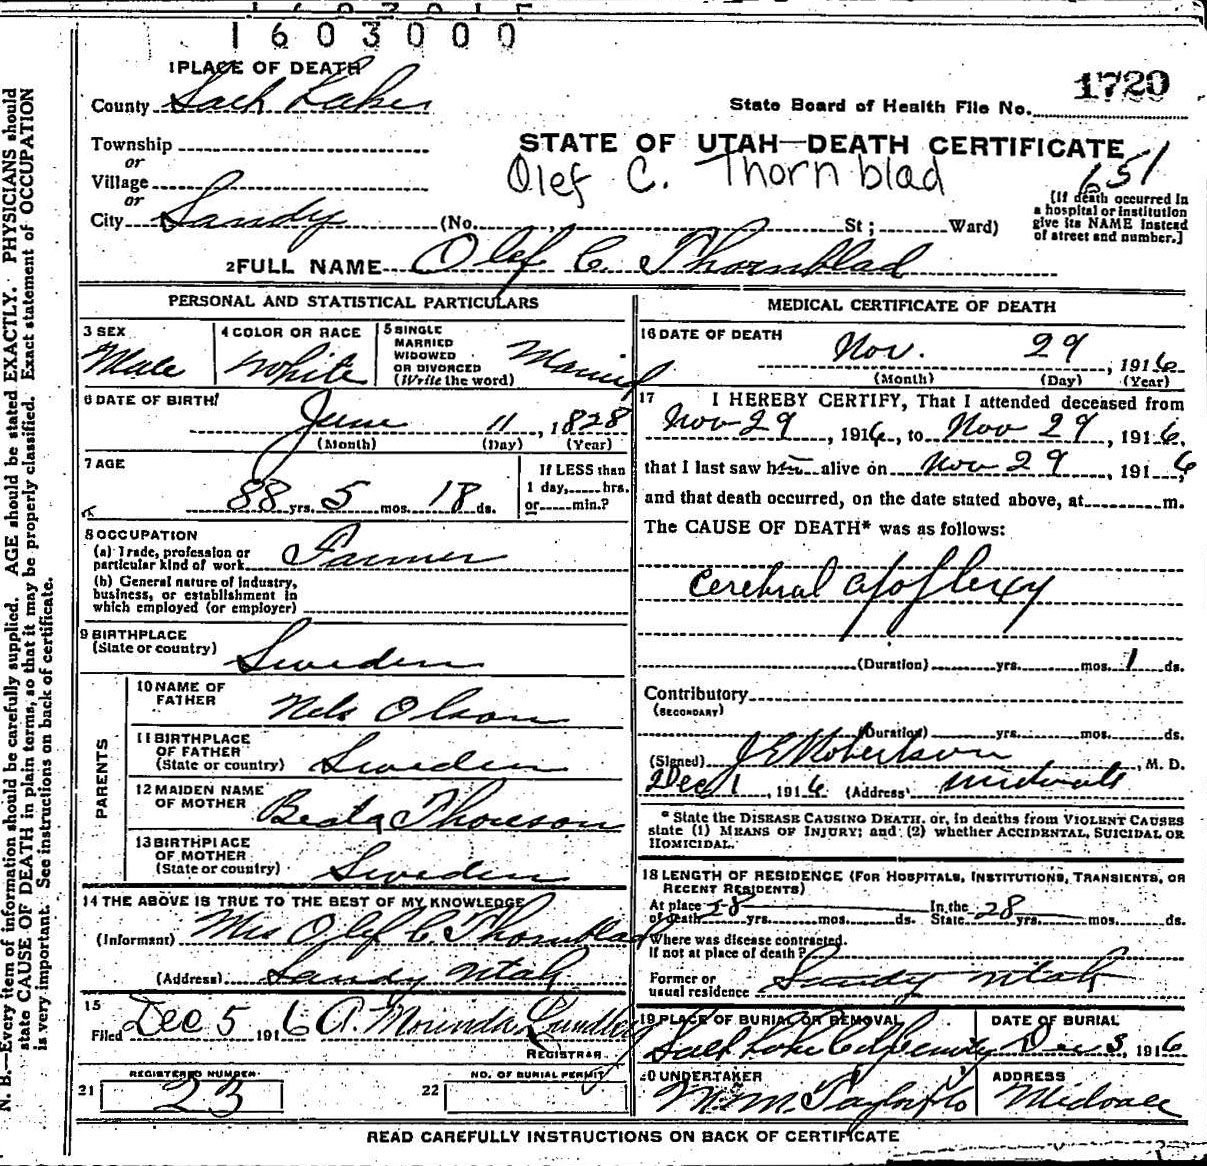 1603000
1 PLACE OF DEATH
County Salt Lake
State Board of Health File No. 1720
Township
or
Village
or
City Sandy (No. , St ; Ward)
STATE OF UTAH—DEATH CERTIFICATE
Olef C. Thornblad
651
[If death occurred in
a hospital or institution
give its NAME instead
of street and number.]
2 FULL NAME Olef C. Thornblad
PERSONAL AND STATISTICAL PARTICULARS
3 SEX
Male
4 COLOR OR RACE
White
5 SINGLE
MARRIED
WIDOWED
OR DIVORCED
(Write the word)
Married
6 DATE OF BIRTH
June 11, 1828
(Month) (Day) (Year)
7 AGE
88 yrs. 5 mos. 18 ds.
If LESS than
1 day, hrs.
or min.?
8 OCCUPATION
(a) Trade, profession or
particular kind of work Farmer
(b) General nature of industry,
business, or establishment in
which employed (or employer)
9 BIRTHPLACE
(State or country) Sweden
PARENTS
10 NAME OF
FATHER Nels Olson
11 BIRTHPLACE
OF FATHER
(State or country) Sweden
12 MAIDEN NAME
OF MOTHER Beata Thoreson
13 BIRTHPLACE
OF MOTHER
(State or country) Sweden
14 THE ABOVE IS TRUE TO THE BEST OF MY KNOWLEDGE
(Informant) Mrs Olef C. Thornblad
(Address) Sandy Utah
15
Filed Dec 5 1916 A. Morinda
REGISTRAR
21 REGISTERED NUMBER
23
22 NO. OF BURIAL PERMIT
MEDICAL CERTIFICATE OF DEATH
16 DATE OF DEATH
Nov. 29, 1916
(Month) (Day) (Year)
17 I HEREBY CERTIFY, That I attended deceased from
Nov 29, 1916, to Nov 29, 1916,
that I last saw him alive on Nov 29, 1916
and that death occurred, on the date stated above, at m.
The CAUSE OF DEATH* was as follows:
Cerebral apoplexy
(Duration) yrs. mos. 1 ds.
Contributory
(SECONDARY)
(Duration) yrs. mos. ds.
(Signed) Robertson, M. D.
Dec 1, 1916 (Address) Midvale
* State the DISEASE CAUSING DEATH, or, in deaths from VIOLENT CAUSES
state (1) MEANS OF INJURY; and (2) whether ACCIDENTAL, SUICIDAL OR
HOMICIDAL.
18 LENGTH OF RESIDENCE (FOR HOSPITALS, INSTITUTIONS, TRANSIENTS, OR
RECENT RESIDENTS)
At place
of death 28 yrs. mos. ds.
In the
State 28 yrs. mos. ds.
Where was disease contracted,
if not at place of death?
Former or
usual residence Sandy Utah
19 PLACE OF BURIAL OR REMOVAL
Salt Lake City Cemetery
DATE OF BURIAL
Dec 3, 1916
20 UNDERTAKER
M. M. Taylor
ADDRESS
Midvale
READ CAREFULLY INSTRUCTIONS ON BACK OF CERTIFICATE
N. B.—Every item of information should be carefully supplied. AGE should be stated EXACTLY. PHYSICIANS should
state CAUSE OF DEATH in plain terms, so that it may be properly classified. Exact statement of OCCUPATION
is very important. See instructions on back of certificate.